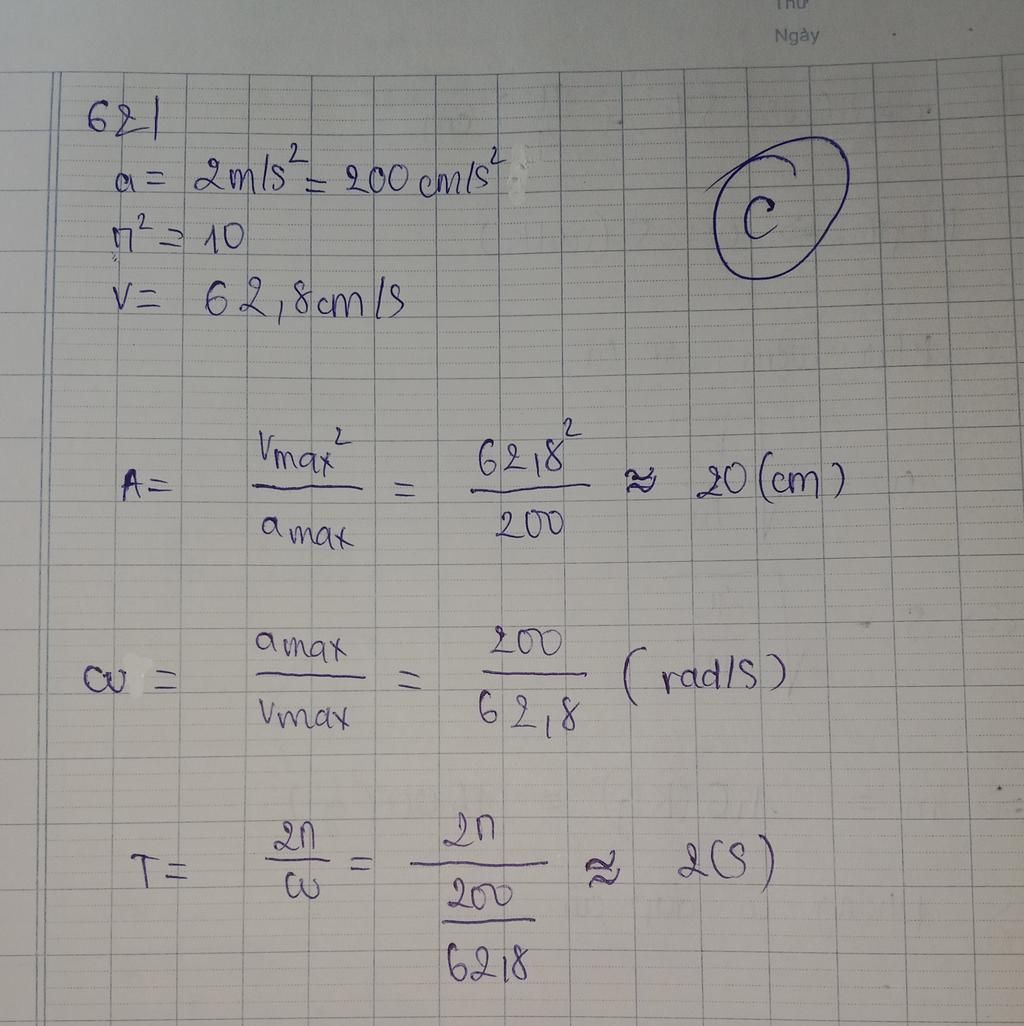 Thứ
Ngày
621
a = 2m/s² = 200 cm/s²
π² = 10
C
v = 62,8cm/s
A = vmax² / amax = 62,8² / 200 ≈ 20 (cm)
ω = amax / vmax = 200 / 62,8 (rad/s)
T = 2π / ω = 2π / (200 / 62,8) ≈ 2(s)